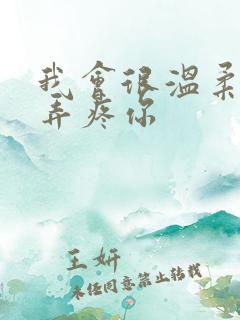 我會很溫柔
弄疼你
王妍
未经同意禁止转载